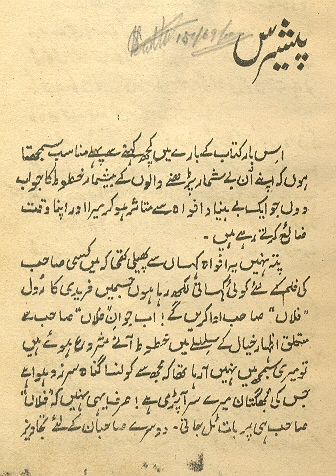 پیشرس
اِس بار کتاب کے بارے میں کچھ کہنے سے پہلے مناسب سمجھتا
ہوں کہ اپنے اُن بے شمار پڑھنے والوں کے بیشمار خطوط کا جواب
دوں جو ایک بے بنیاد افواہ سے متاثر ہو کر میرا اور اپنا وقت
ضائع کرتے رہے ہیں۔
پتہ نہیں یہ افواہ کہاں سے پھیلی تھی کہ میں کسی صاحب
کی فلم کے لئے کوئی کہانی لکھ رہا ہوں جسمیں فریدی کا رول
”فلاں“ صاحب ادا کریں گے! اب جو اِن ”فلاں“ صاحب سے
متعلق اظہارِ خیال کے سلسلے میں خطوط آنے شروع ہوئے ہیں
تو میری سمجھ میں نہیں آ رہا تھا کہ مجھ سے کونسا گناہ سرزد ہوا ہے
جس کی بھگتان میرے سر آ پڑی ہے! صرف یہی نہیں کہ ”فلاں“
صاحب ہی پر بات ٹل جاتی۔ دوسرے صاحبان کے لئے تجاویز